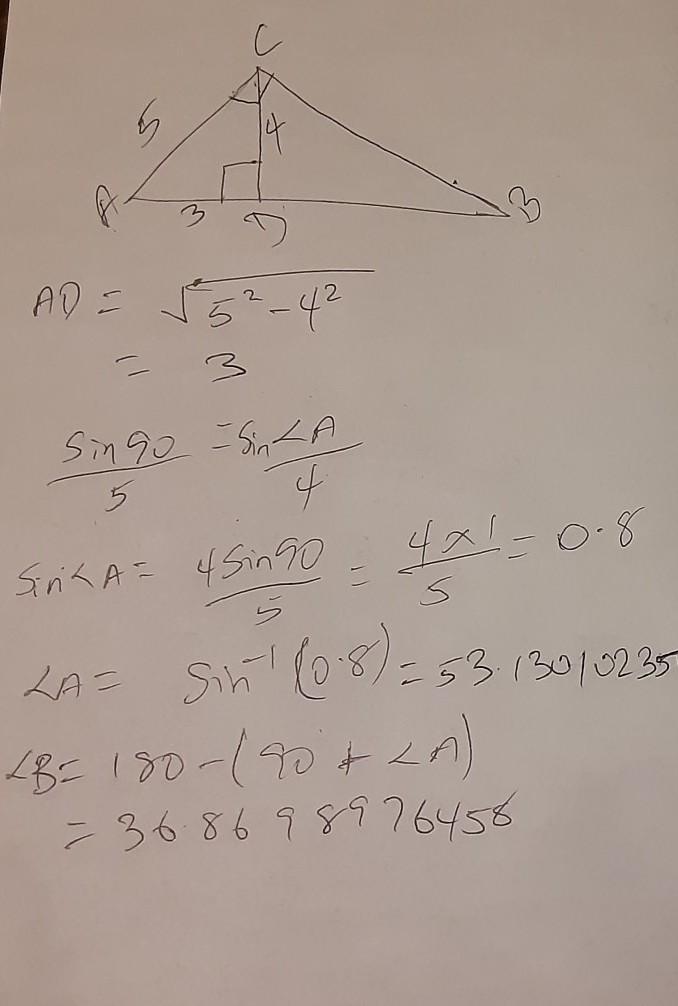 C
5
4
A
3
D
B
AD = √5² - 4²
= 3
Sin 90/5 = Sin <A/4
Sin <A = 4 Sin 90/5 = 4 x 1/5 = 0.8
<A = Sin⁻¹ (0.8) = 53.13010235
<B = 180 - (90 + <A)
= 36.8698976458